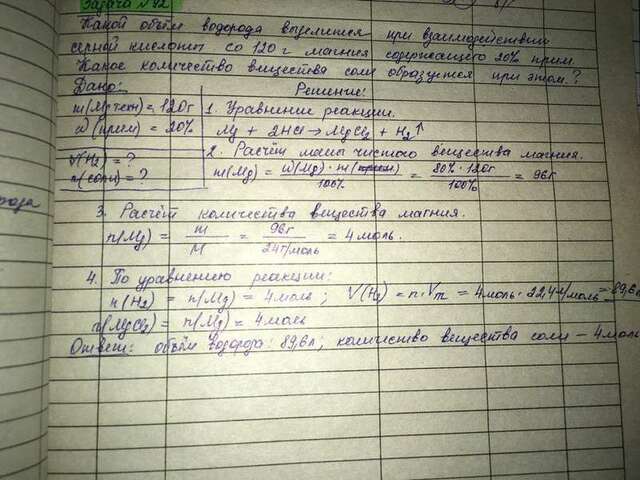 Задача №42
Какой объём водорода выделится при взаимодействии
серной кислоты со 120 г магния содержащего 20% прим.
Какое количество вещества соли образуется при этом?
Дано: Решение:
m(Mg техн) = 120г 1. Уравнение реакции.
ω(прим) = 20% Mg + 2HCl → MgCl2 + H2↑
2. Расчёт массы чистого вещества магния.
V(H2) = ? m(Mg) = ω(Mg) · m(техн) / 100% = 80% · 120г / 100% = 96г
n(соли) = ?
3. Расчёт количества вещества магния.
n(Mg) = m / M = 96г / 24г/моль = 4 моль.
4. По уравнению реакции:
n(H2) = n(Mg) = 4 моль ; V(H2) = n · Vm = 4 моль · 22,4 л/моль = 89,6л
n(MgCl2) = n(Mg) = 4 моль
Ответ: объём водорода: 89,6л; количество вещества соли – 4 моль